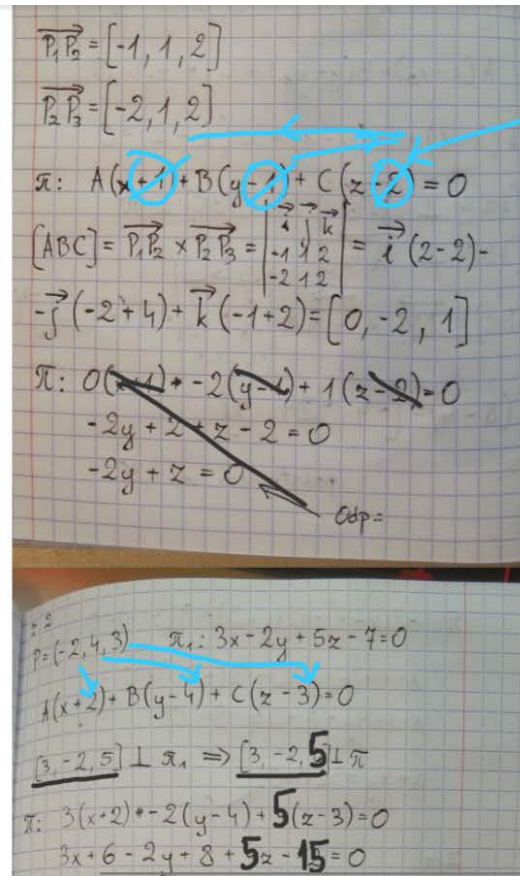 P₁P₂ = [-1, 1, 2]
P₂P₃ = [-2, 1, 2]
π: A(x+1)+B(y-1)+C(z-2)=0
[ABC] = P₁P₂ × P₂P₃ = | i j k | = i (2-2)-
-1 1 2
-2 1 2
-j (-2+4)+k (-1+2)=[0, -2, 1]
π: 0(x+1) + -2(y-1)+1(z-2)=0
-2y+2+z-2=0
-2y+z=0
z 2
P=(-2,4,3) π₁: 3x-2y+5z-7=0
A(x+2)+B(y-4)+C(z-3)=0
[3,-2,5] ⊥ π₁ ⇒ [3,-2,5] ⊥ π
π: 3(x+2)+-2(y-4)+5(z-3)=0
3x+6-2y+8+5z-15=0